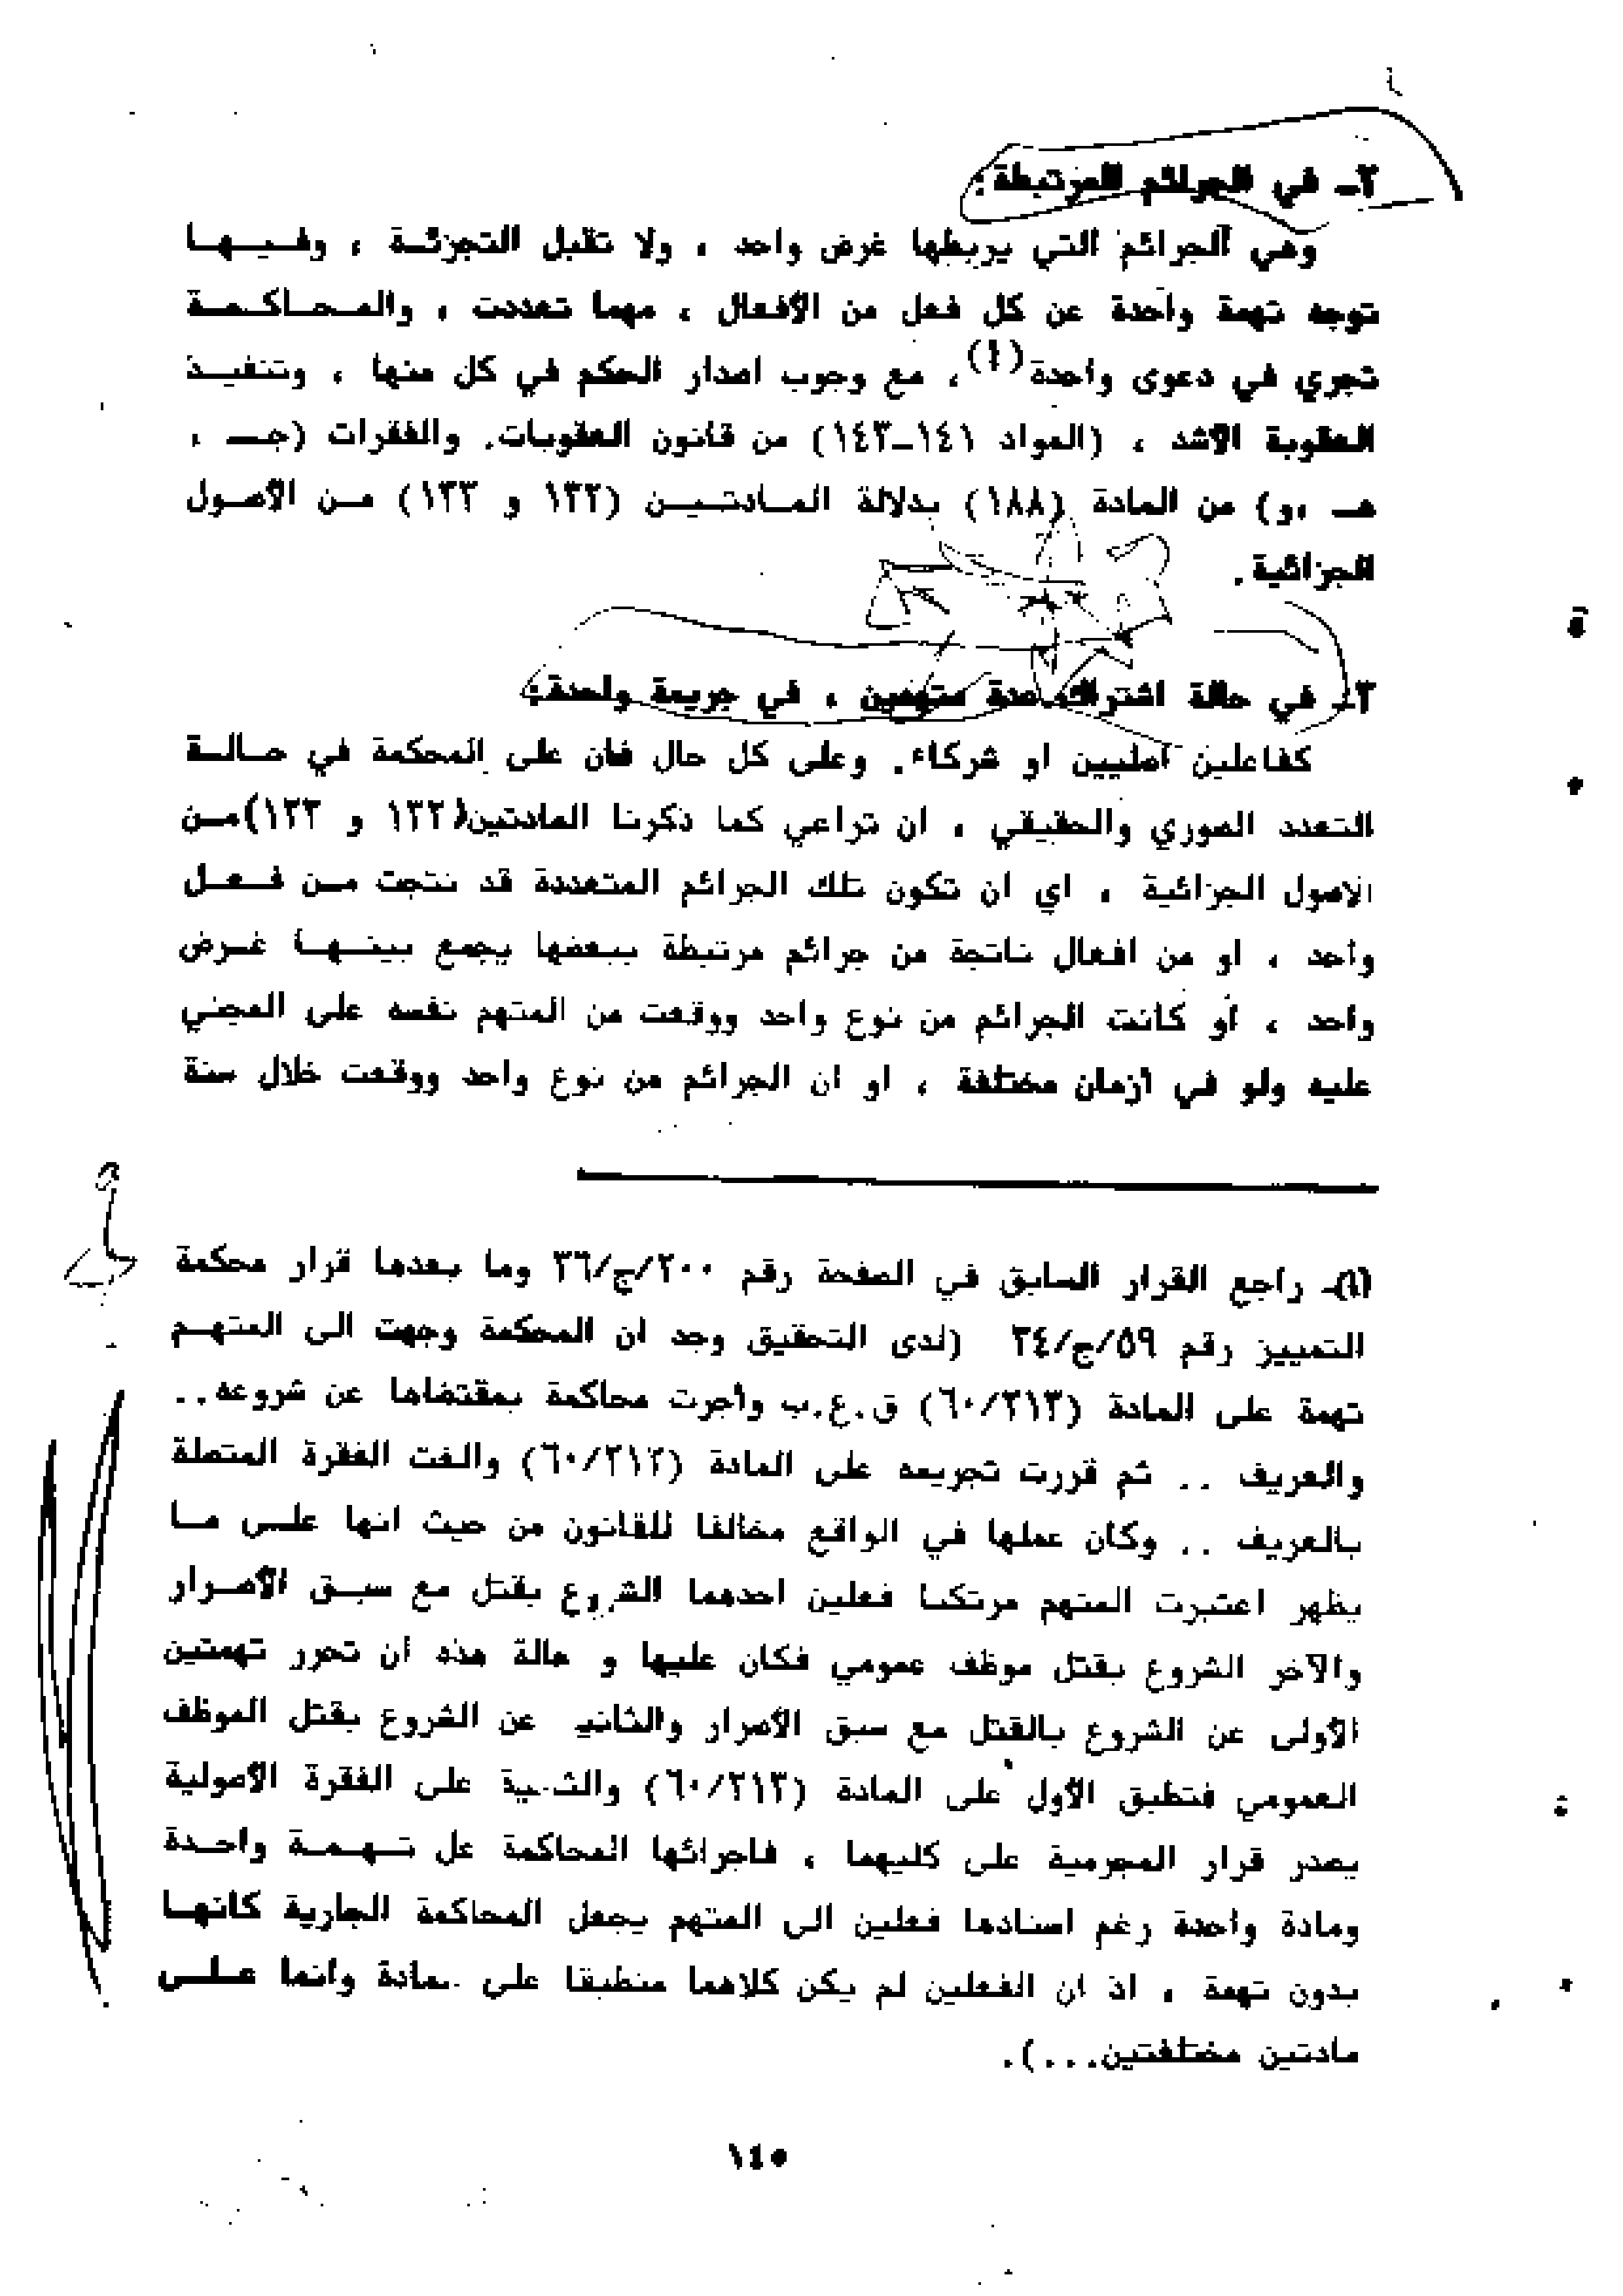 ٢ـ في الجرائم المرتبطة:
وهي الجرائم التي يربطها غرض واحد ، ولا تقبل التجزئة ، وفيها
توجه تهمة واحدة عن كل فعل من الأفعال ، مهما تعددت ، والمحاكمة
تجري في دعوى واحدة(١)، مع وجوب اصدار الحكم في كل منها ، وتنفيذ
العقوبة الاشد ، (المواد ١٤١ـ١٤٣) من قانون العقوبات. والفقرات (جـ ،
هـ ،و) من المادة (١٨٨) بدلالة المادتين (١٣٢ و ١٣٣) من الأصول
الجزائية.
٣ـ في حالة اشتراك عدة متهمين ، في جريمة واحدة:
كفاعلين اصليين او شركاء. وعلى كل حال فان على المحكمة في حالة
التعدد الصوري والحقيقي ، ان تراعي كما ذكرنا المادتين(١٣٢ و ١٣٣)من
الاصول الجزائية ، اي ان تكون تلك الجرائم المتعددة قد نتجت من فعل
واحد ، او من افعال ناتجة من جرائم مرتبطة ببعضها يجمع بينها غرض
واحد ، أو كانت الجرائم من نوع واحد ووقعت من المتهم نفسه على المجني
عليه ولو في ازمان مختلفة ، او ان الجرائم من نوع واحد ووقعت خلال سنة
(١)ـ راجع القرار السابق في الصفحة رقم ٢٠٠/ج/٣٦ وما بعدها قرار محكمة
التمييز رقم ٥٩/ج/٣٤ (لدى التحقيق وجد ان المحكمة وجهت الى المتهم
تهمة على المادة (٦٠/٢١٣) ق.ع.ب وأجرت محاكمة بمقتضاها عن شروعه..
والعريف .. ثم قررت تجريمه على المادة (٦٠/٢١٢) والغت الفقرة المتصلة
بالعريف .. وكان عملها في الواقع مخالفا للقانون من حيث انها على ما
يظهر اعتبرت المتهم مرتكبا فعلين احدهما الشروع بقتل مع سبق الأصرار
والآخر الشروع بقتل موظف عمومي فكان عليها و حالة هذه ان تحرر تهمتين
الأولى عن الشروع بالقتل مع سبق الأصرار والثانية عن الشروع بقتل الموظف
العمومي فتطبق الأول على المادة (٦٠/٢١٣) على الفقرة الأصولية
يصدر قرار المجرمية على كليهما ، فاجرائها المحاكمة عل تهمة واحدة
ومادة واحدة رغم اسنادها فعلين الى المتهم يجعل المحاكمة الجارية كانها
بدون تهمة ، اذ ان الفعلين لم يكن كلاهما منطبقا على مادة وانما على
مادتين مختلفتين...).
١٤٥